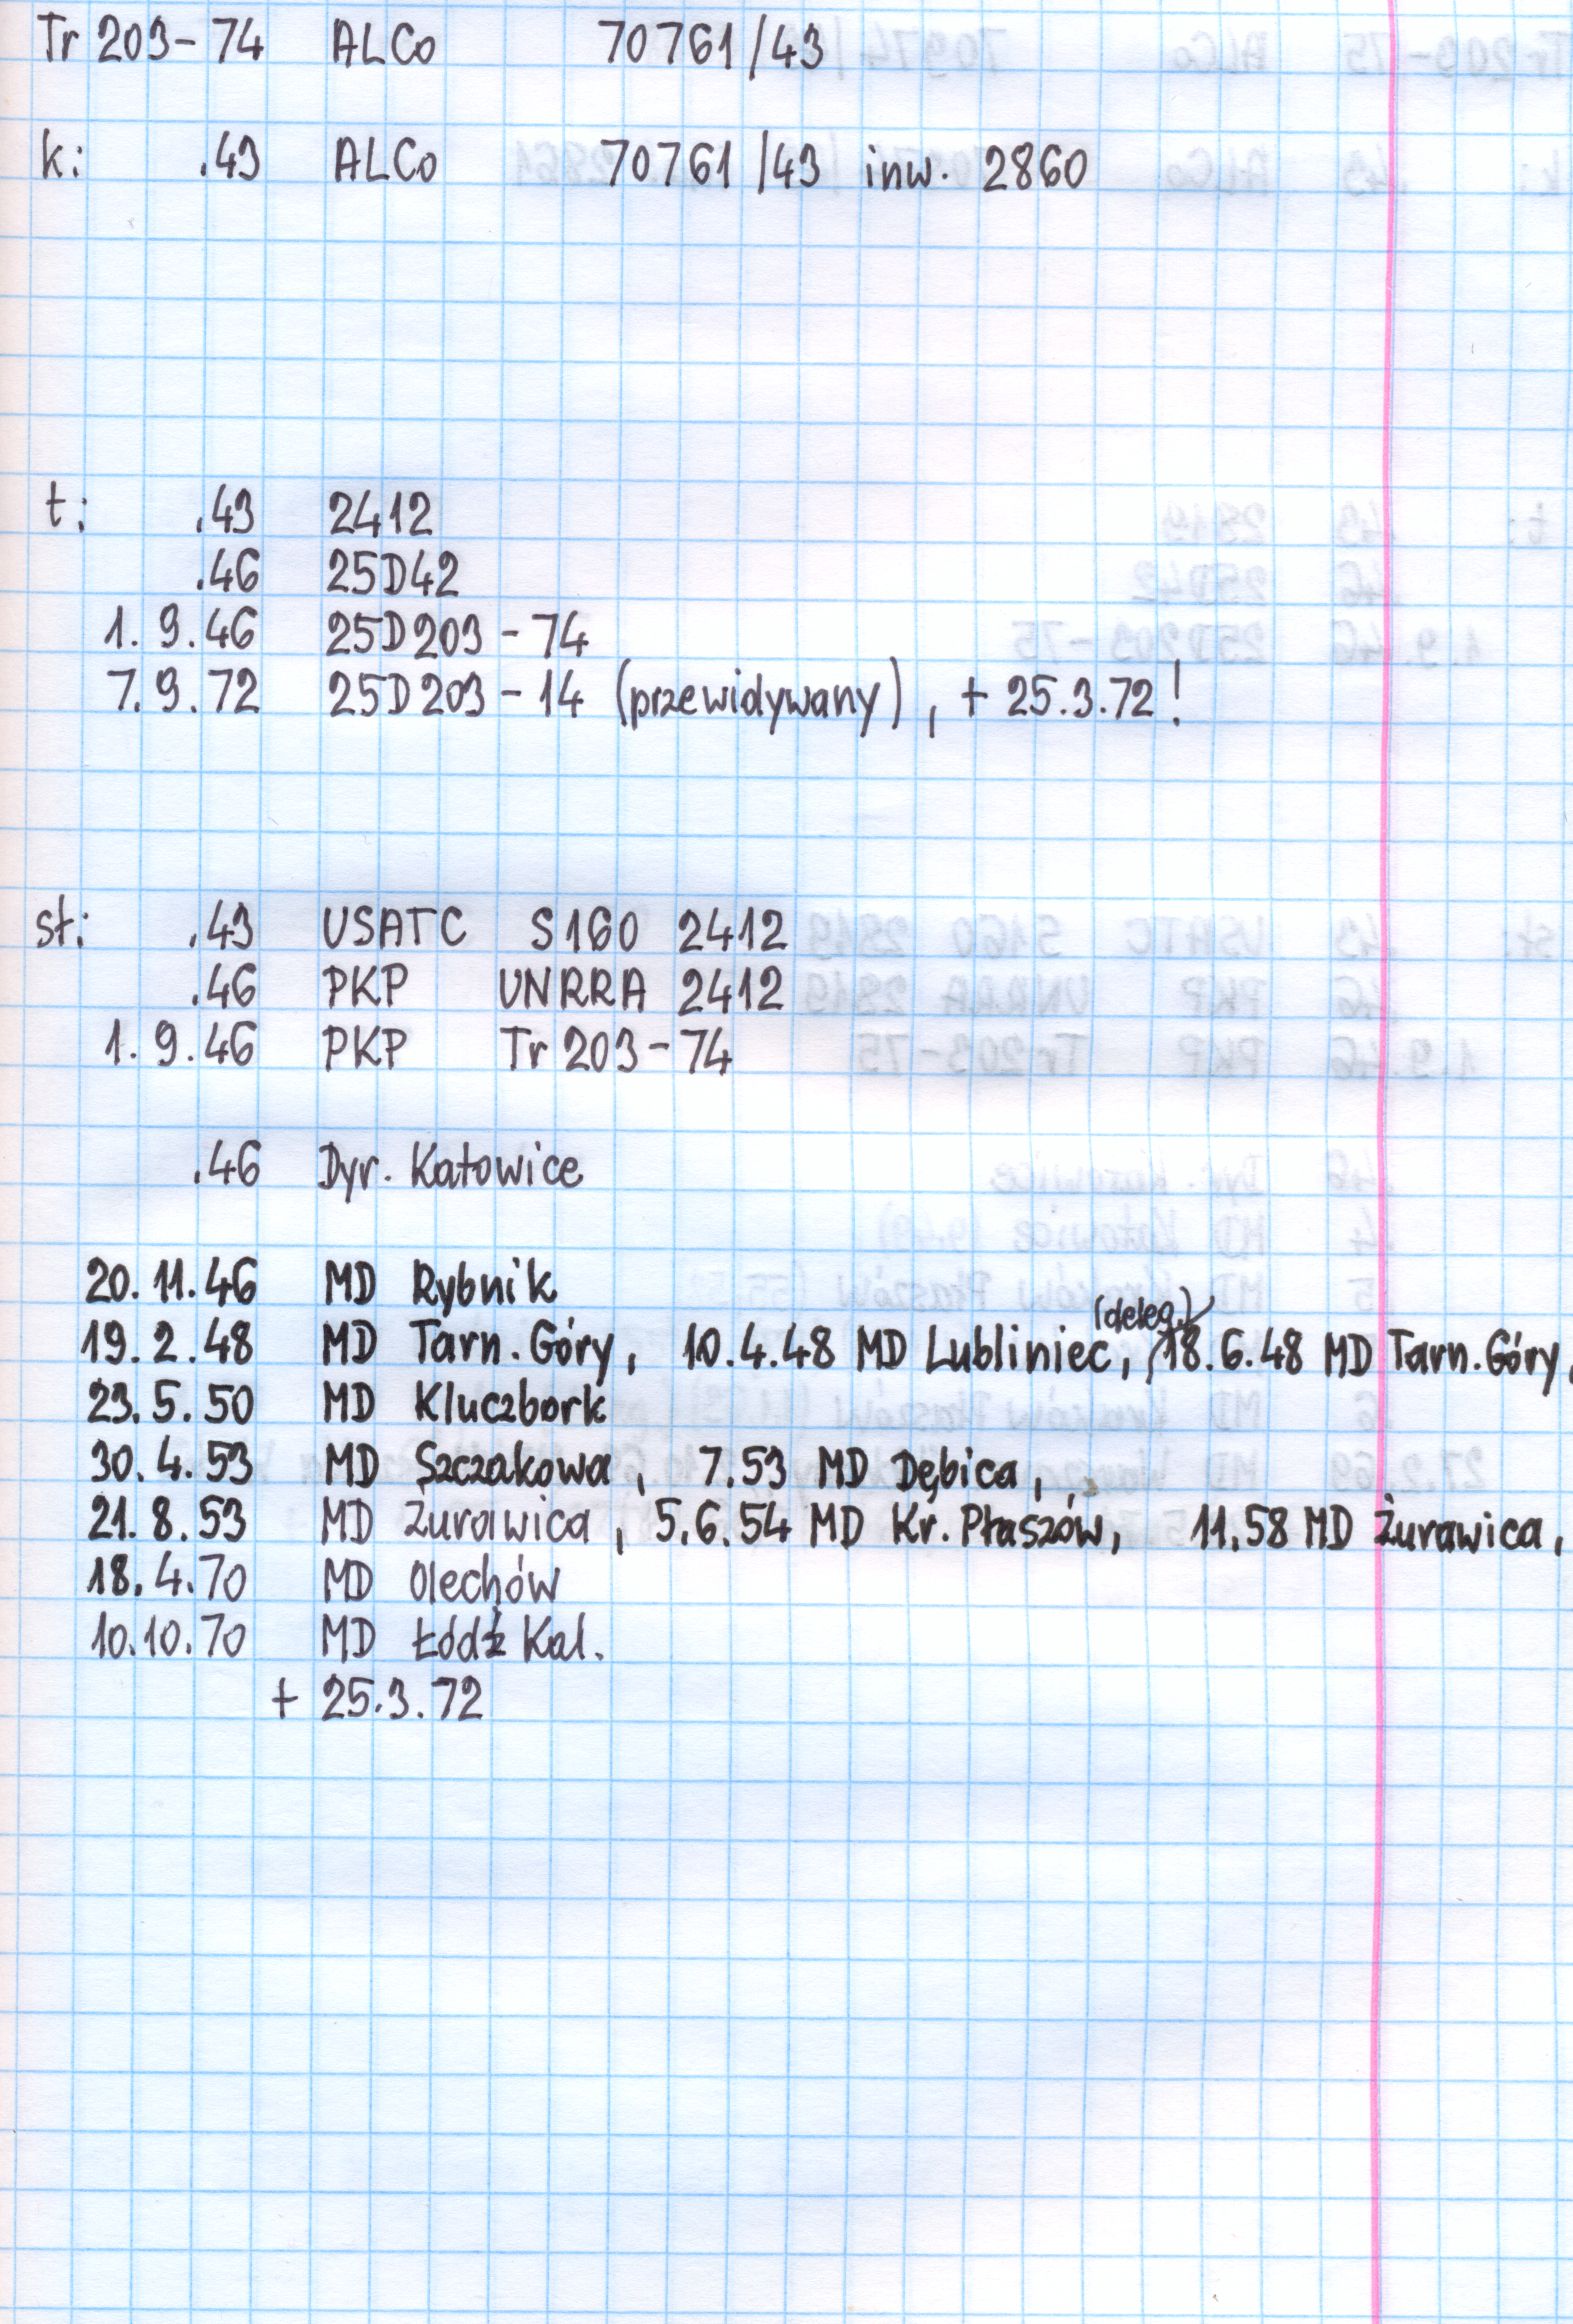 Tr 203-74 ALCo 70761/43
k: .43 ALCo 70761/43 inw. 2860
t: .43 2412
.46 25D42
1. 9.46 25D203-74
7. 9.72 25D203-14 (przewidywany), + 25.3.72!
st: .43 USATC S160 2412
.46 PKP UNRRA 2412
1. 9.46 PKP Tr 203-74
.46 Dyr. Katowice
20.11.46 MD Rybnik
(deleg.)
19. 2.48 MD Tarn. Góry, 10.4.48 MD Lubliniec, 18.6.48 MD Tarn. Góry,
23. 5.50 MD Kluczbork
30. 4.53 MD Szczakowa, 7.53 MD Dębica,
21. 8.53 MD Żurawica, 5.6.54 MD Kr. Płaszów, 11.58 MD Żurawica,
18. 4.70 MD Olechów
10.10.70 MD Łódź Kal.
+ 25.3.72